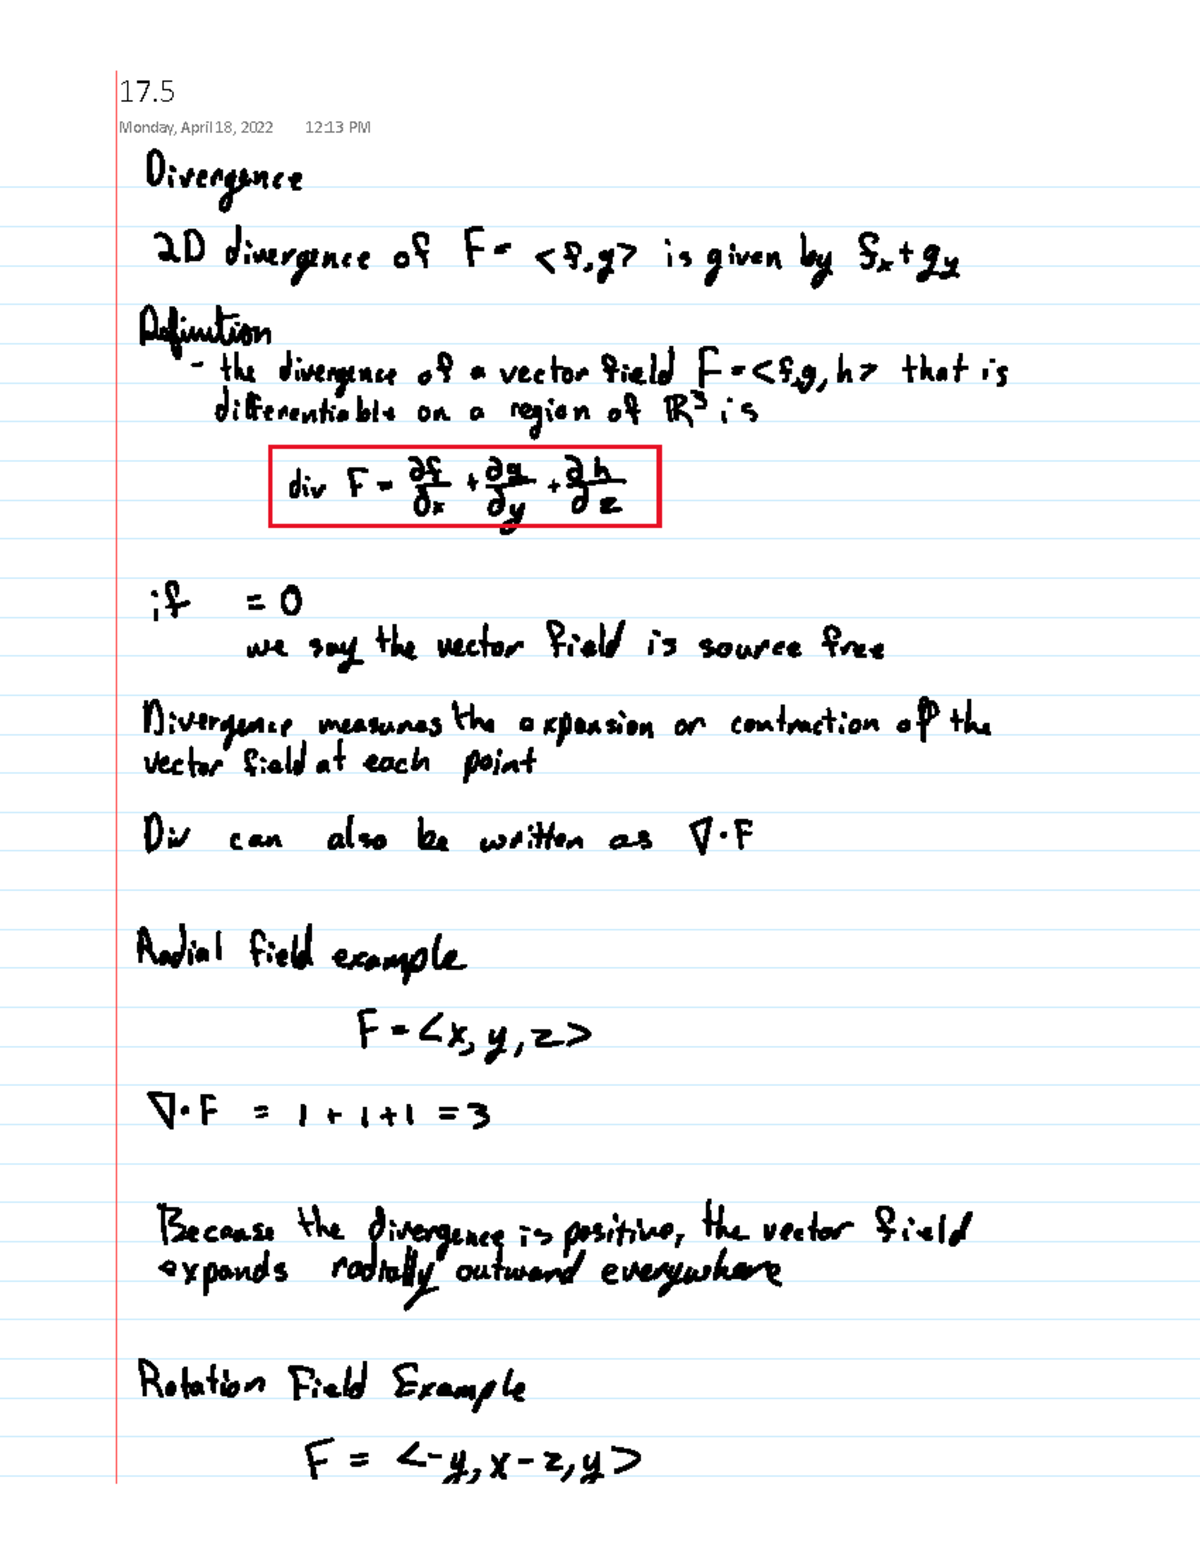 17.5
Monday, April 18, 2022 12:13 PM
Divergence
2D divergence of F = <f,g> is given by fx + gy
Definition
- the divergence of a vector field F = <f,g,h> that is
differentiable on a region of ℝ³ is
div F = ∂f/∂x + ∂g/∂y + ∂h/∂z
if = 0
we say the vector field is source free
Divergence measures the expansion or contraction of the
vector field at each point
Div can also be written as ∇·F
Radial field example
F = <x, y, z>
∇·F = 1 + 1 + 1 = 3
Because the divergence is positive, the vector field
expands radially outward everywhere
Rotation Field Example
F = <-y, x-z, y>